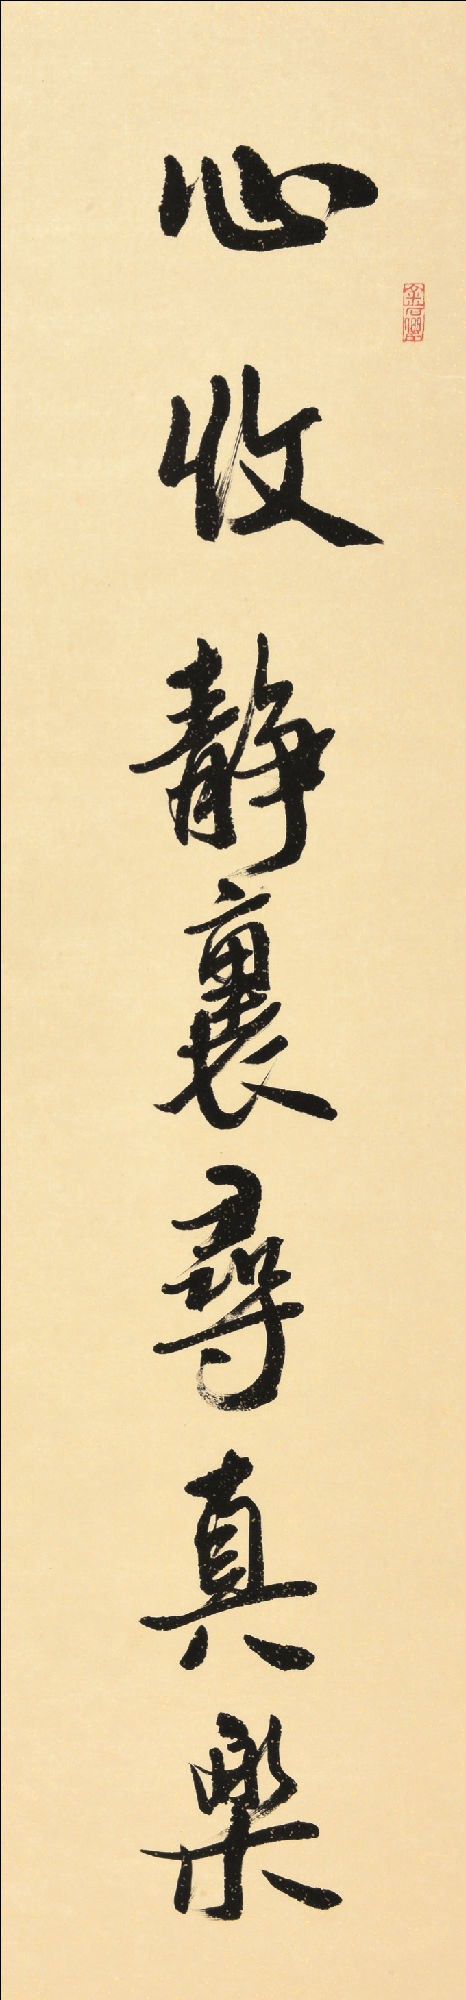 心收静裏尋真樂